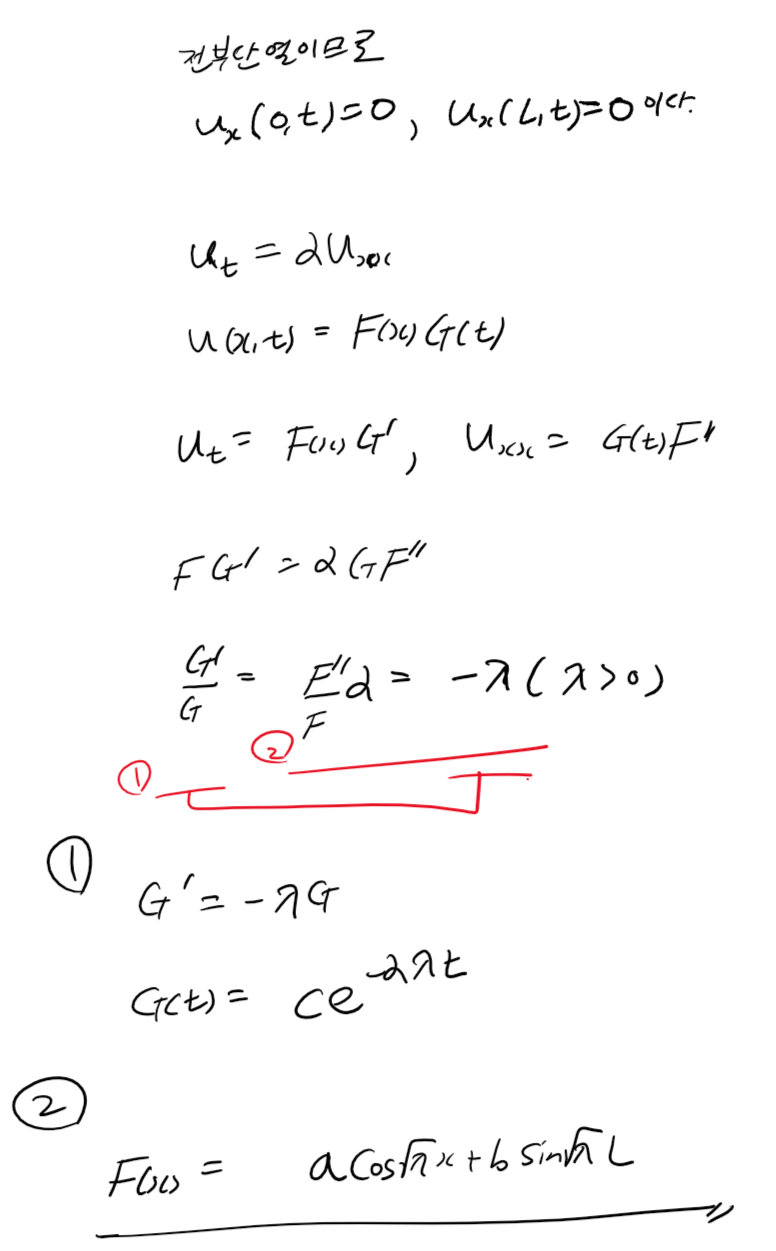 전부단열이므로
u_x(0,t)=0, u_x(L,t)=0 이다.
u_t = αu_xx
u(x,t) = F(x)G(t)
u_t = F(x)G', u_xx = G(t)F''
FG' = αGF''
G'/G = F''/F α = -λ(λ>0)
① ②
① G' = -λG
G(t) = ce^{-αλt}
②
F(x) = a cos√λx + b sin√λL